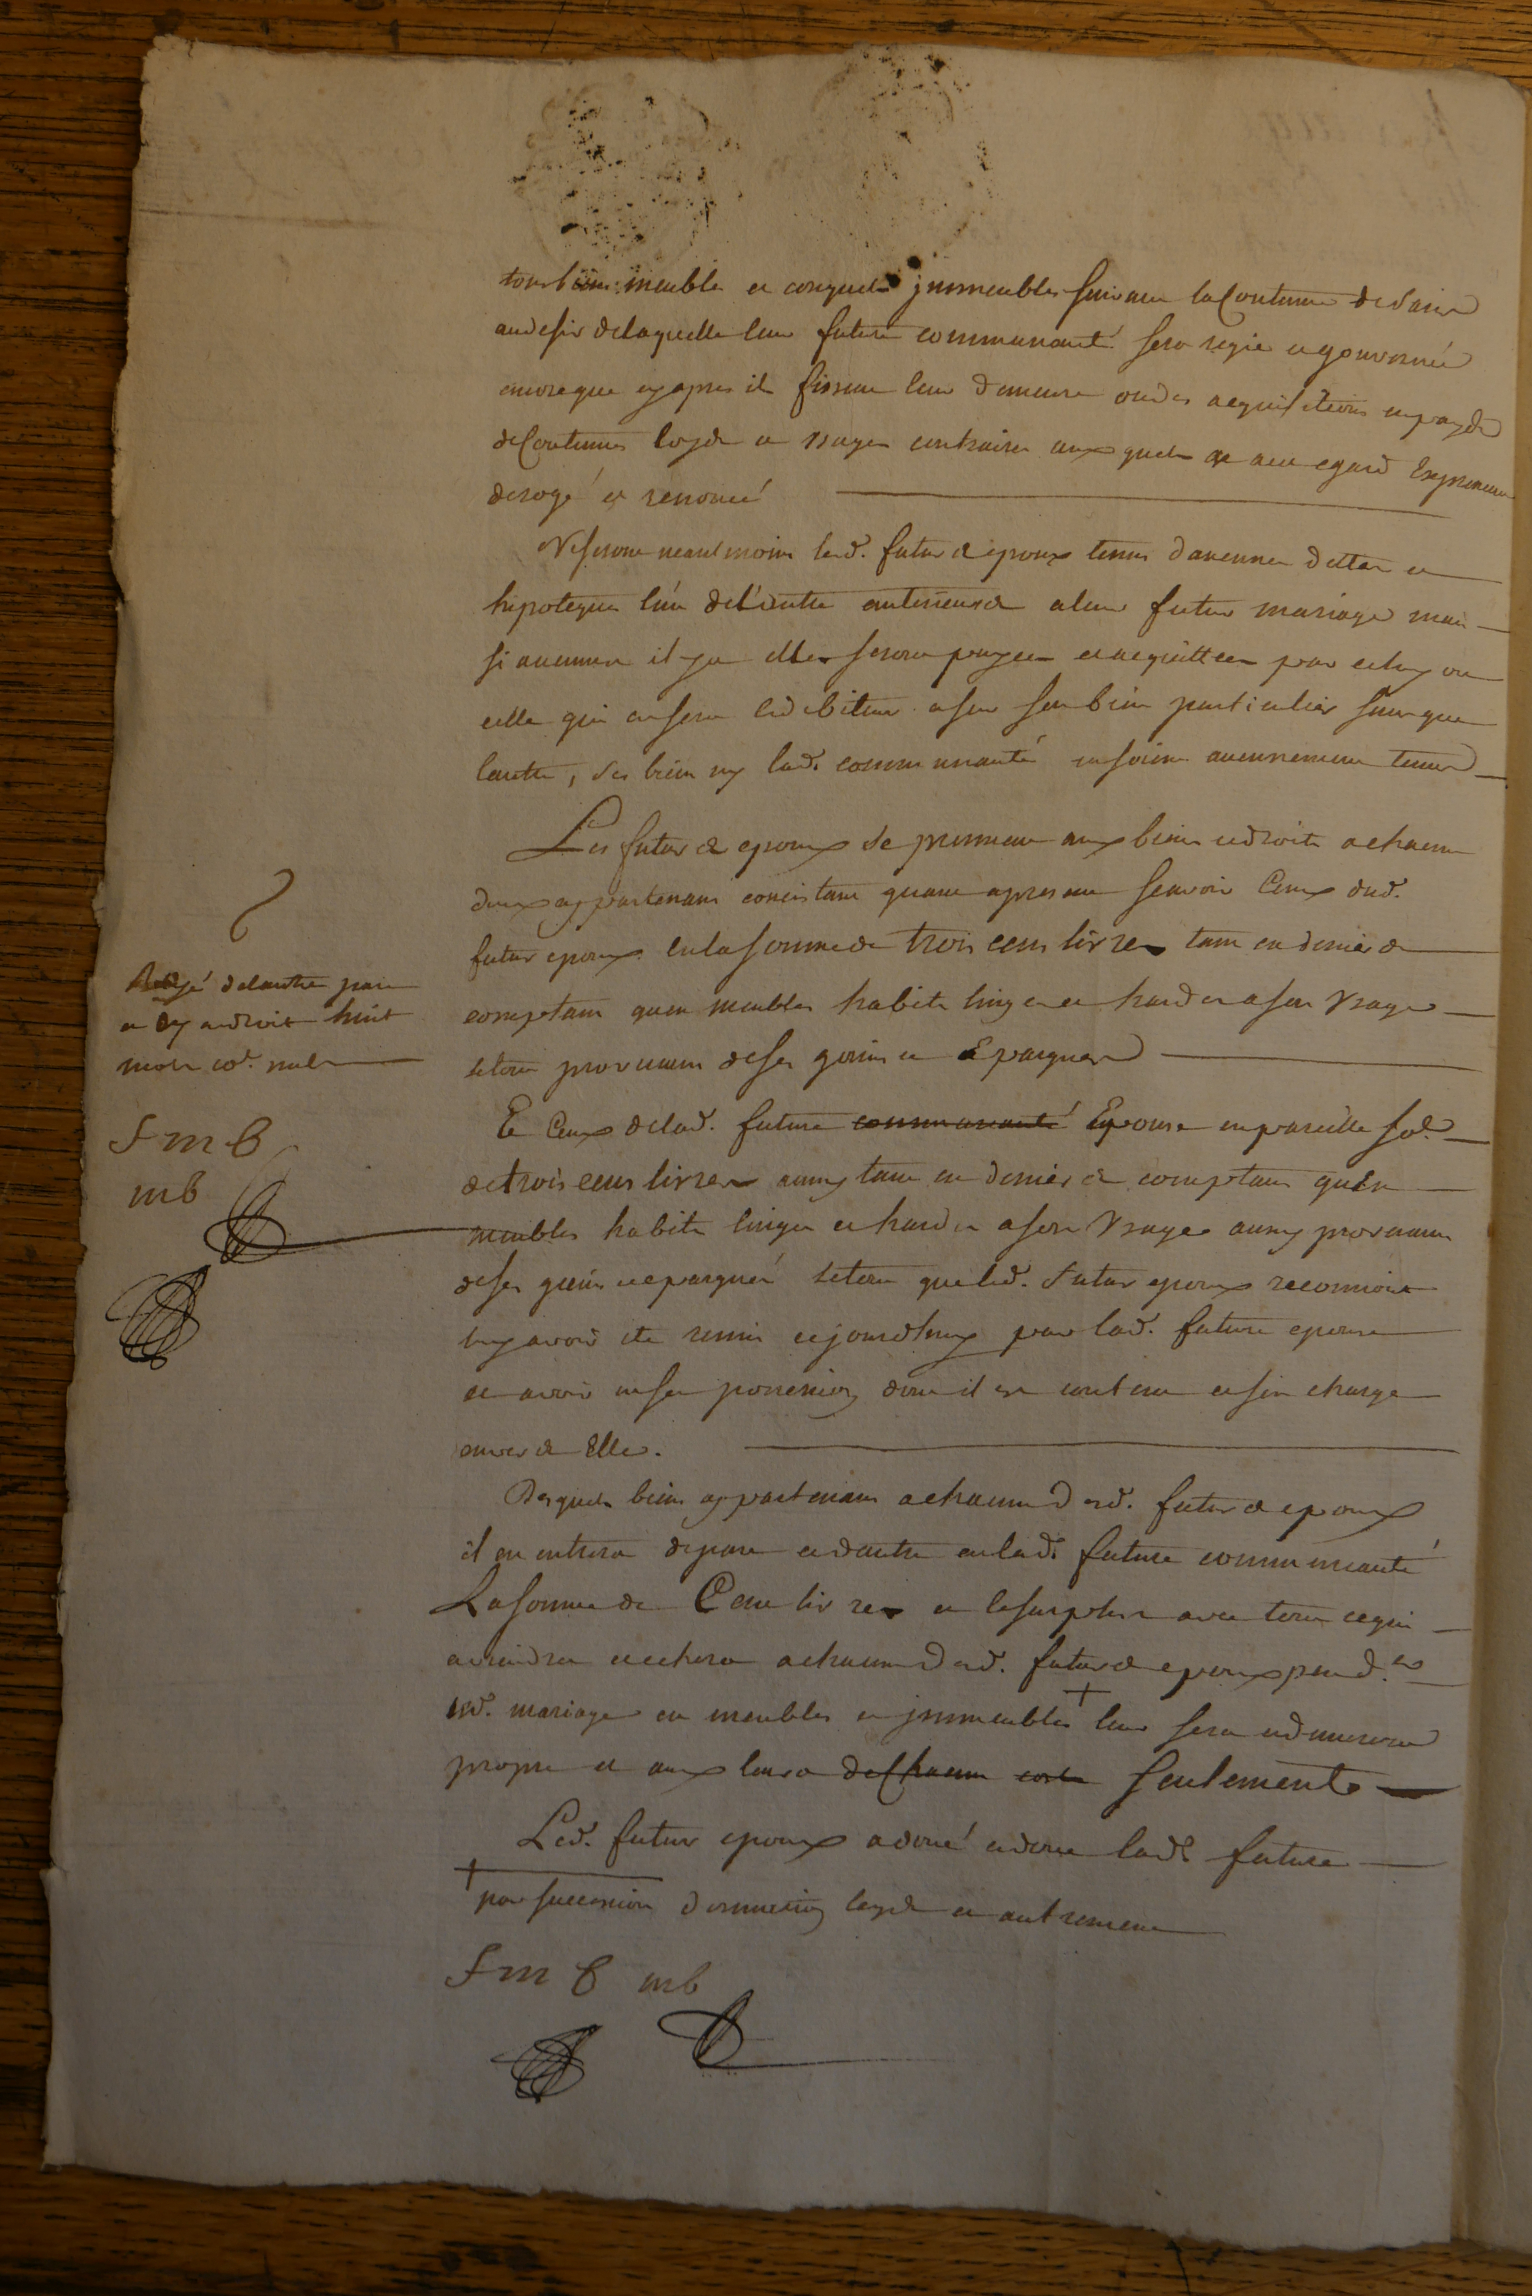 tous biens meubles et conquets jmmeubles suivant la Coutume de Paris
au desir delaquelle leur future communauté sera regie et gouvernée
encore que cy apres ils fissent leur demeure ou des acquisitions en pays de
de Coutumes loyx et usages contraires aux quels a cet egard Expressement
derogé et renoncé
Ne seront neantmoins lesd. futurs epoux tenus d'aucunes dettes et
hipoteques l'un de l'autre anterieures a leur futur mariage mais
si aucunes il y a elles seront payées et acquittées par celuy ou
celle qui en sera le debiteur et sur son bien particulier sans que
l'autre, ses biens ny lad. communauté en soient aucunement tenus
Les futurs epoux se prennent aux biens et droits a chacun
d'eux appartenans concistans quant apresent scavoir Ceux dud.
futur epoux en la somme de trois cens livres tant en deniers
comptans qu'en meubles habits linges et hardes a son Usage
le tout provenant de ses gains et Epargnes
Et Ceux de lad. future communauté Epouse en pareille so.e
de trois cens livres aussy tant en deniers comptans qu'en
meubles habits linges et hardes a son Usage aussy provenant
de ses gains et epargnes le tout que led. futur epoux reconnoist
luy avoir été remis cejourd'huy par lad. future epouse
et avoir en sa possession dont il est content et s'en charge
envers Elle.
Desquels biens appartenans a chacun desd. futurs epoux
il en entrera de part et d'autre en lad. future communauté
La somme de Cent livres et le surplus avec tout ce qui
aviendra et echera a chacun desd. futurs epoux pend.t
led. mariage en meubles et jmmeubles + leur sera et demeurera
propre et aux leurs de chacun coste seulement
Led. futur epoux a doué et doue lad. future
+ par succession donnation legs et autrement
F m B mb
Rayé de l'autre part
et cy endroit huit
mots co.e nuls
F m B
mb